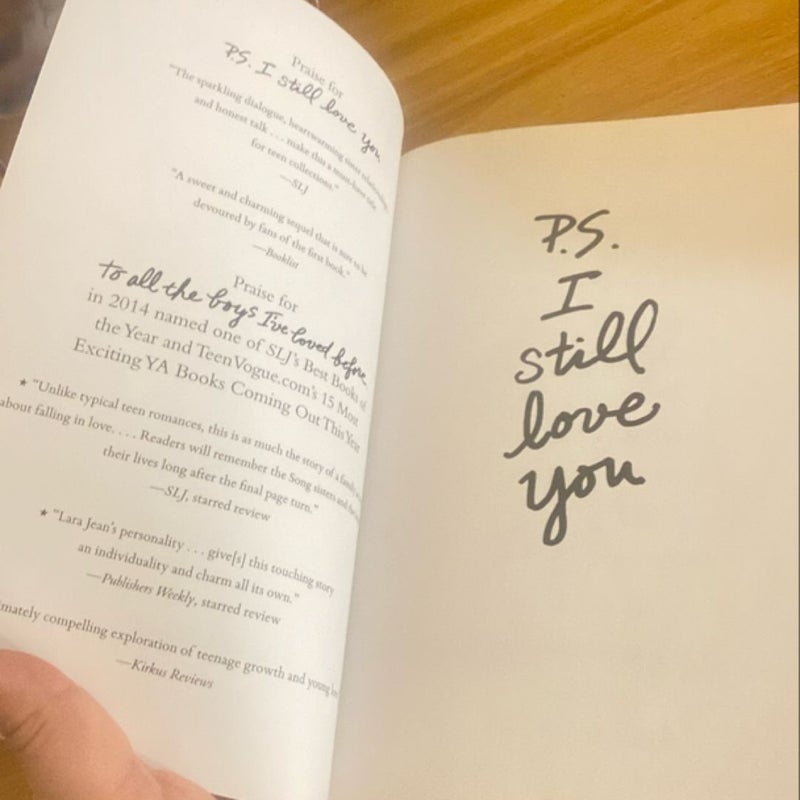 Praise for
P.S. I still love you
"The sparkling dialogue, heartwarming sister relationships,
and honest talk . . . make this a must-have title
for teen collections."
—SLJ
"A sweet and charming sequel that is sure to be
devoured by fans of the first book."
—Booklist
Praise for
to all the boys I've loved before,
in 2014 named one of SLJ's Best Books of
the Year and TeenVogue.com's 15 Most
Exciting YA Books Coming Out This Year
★ "Unlike typical teen romances, this is as much the story of a family as
about falling in love. . . . Readers will remember the Song sisters and
their lives long after the final page turn."
—SLJ, starred review
★ "Lara Jean's personality . . . give[s] this touching story
an individuality and charm all its own."
—Publishers Weekly, starred review
compelling exploration of teenage growth and young
—Kirkus Reviews
P.S.
I
still
love
you